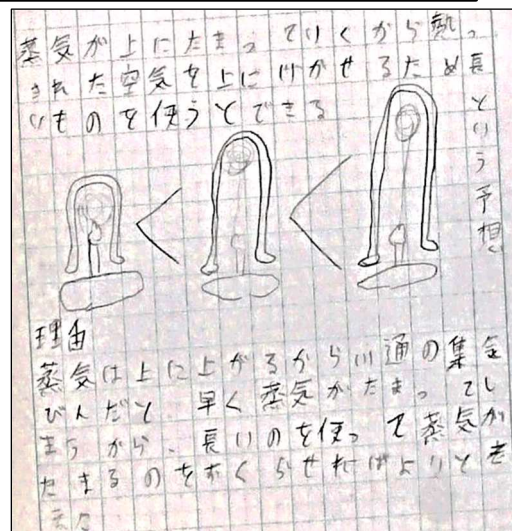 蒸気が上にたまっていくから熱っ
された空気を上に行かせるため長
いものを使うとできる
という予想
理由
蒸気は上に上がるから普通の集気
びんだと、早く蒸気がたまってし
まうから、長いのを使って蒸気が
たまるのをおくらせればよいと考
えた